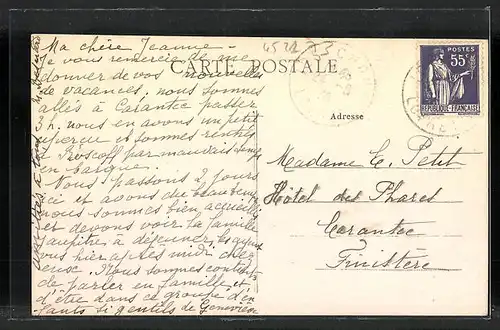 Ma chère Jeanne -
Je vous remercie de me
donner de vos nouvelles
de vacances, nous sommes
allés à Carantec passer
h. nous en avons eu un petit
aperçu et sommes rentrés
à Roscoff par mauvais temps
en barque.
Nous passons 2 jours
ici et avons du beau temps
nous sommes bien accueillis
et devons voir la famille
à déjeuner,
vus hier après midi chez
Nous sommes contents
de parler en famille et
d'être dans ce groupe d'en
fants si gentils de Geneviève
CARTE POSTALE
Adresse
POSTES
55c
REPUBLIQUE FRANÇAISE
Madame C. Petit
Hôtel des Phares
Carantec
Finistère